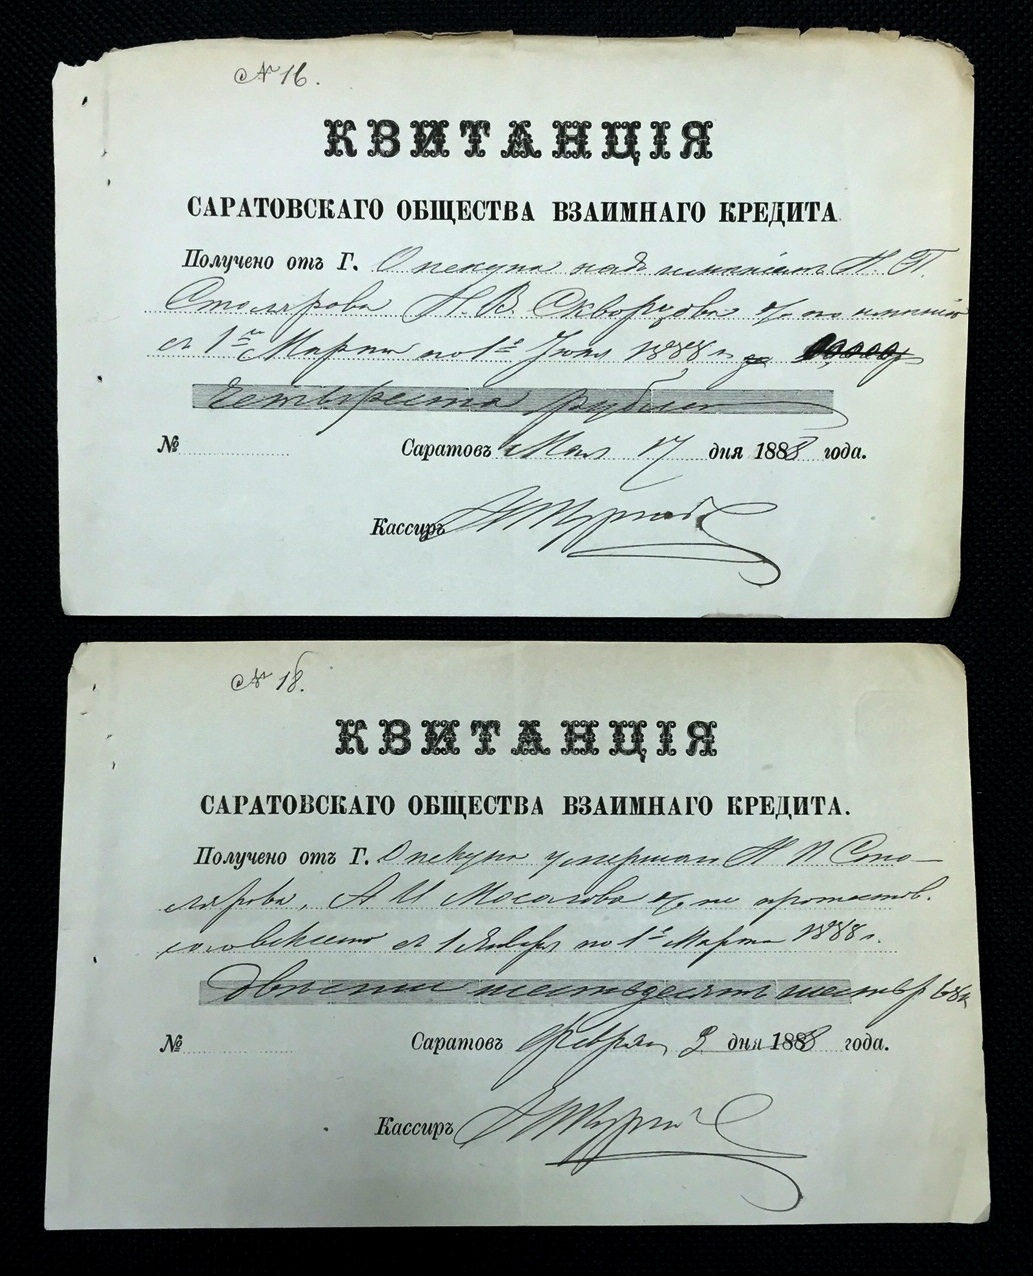 № 16.
КВИТАНЦІЯ
САРАТОВСКАГО ОБЩЕСТВА ВЗАИМНАГО КРЕДИТА.
Получено отъ Г. Опекуна надъ имѣніемъ Н. П.
Столярова Н. В. Скворцова % по имѣнію
съ 1го Марта по 1е Іюня 1888 г.
Четыреста рублей
№ Саратовъ Мая 17 дня 1888 года.
Кассиръ
№ 18.
КВИТАНЦІЯ
САРАТОВСКАГО ОБЩЕСТВА ВЗАИМНАГО КРЕДИТА.
Получено отъ Г. Опекуна Н П Сто-
лярова, А И Мосолова % по протестов.
съ 1 Января по 1е Марта 1888 г.
Двѣсти шестьдесятъ шесть р 68 к
№ Саратовъ Февраля 3 дня 1888 года.
Кассиръ